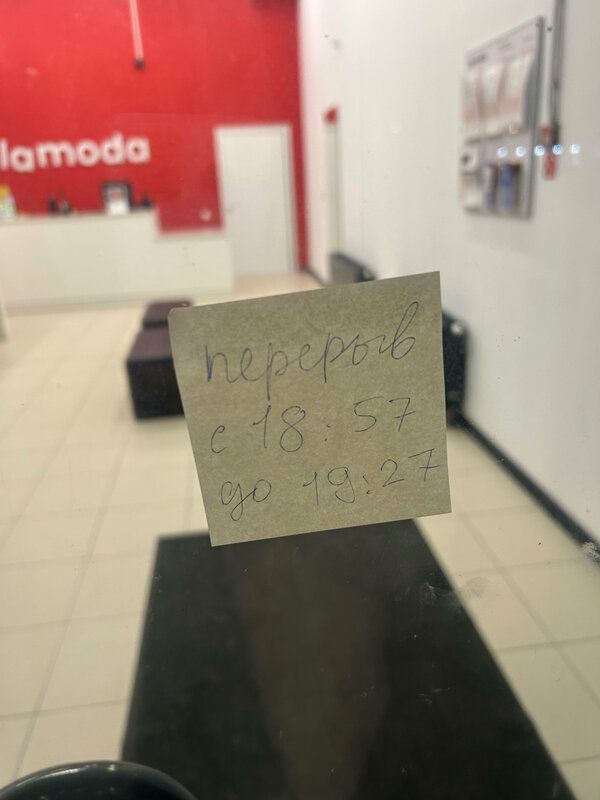 lamoda
перерыв
с 18:57
до 19:27